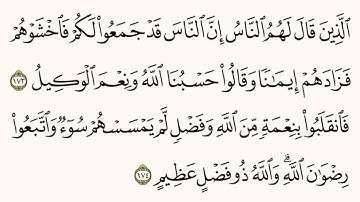 ٱلَّذِينَ قَالَ لَهُمُ ٱلنَّاسُ إِنَّ ٱلنَّاسَ قَدْ جَمَعُوا۟ لَكُمْ فَٱخْشَوْهُمْ
فَزَادَهُمْ إِيمَٰنًا وَقَالُوا۟ حَسْبُنَا ٱللَّهُ وَنِعْمَ ٱلْوَكِيلُ ١٧٣
فَٱنقَلَبُوا۟ بِنِعْمَةٍ مِّنَ ٱللَّهِ وَفَضْلٍ لَّمْ يَمْسَسْهُمْ سُوٓءٌ وَٱتَّبَعُوا۟
رِضْوَٰنَ ٱللَّهِ ۗ وَٱللَّهُ ذُو فَضْلٍ عَظِيمٍ ١٧٤